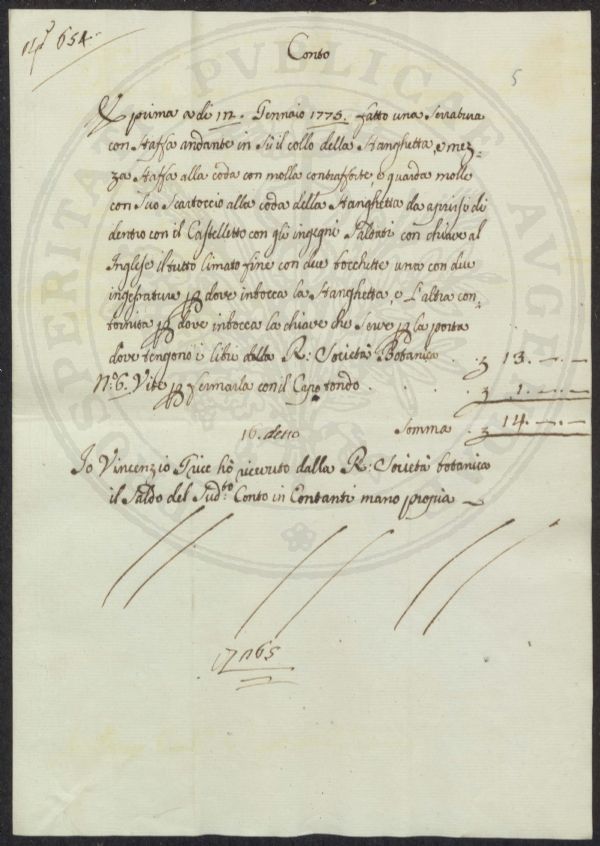 N.º 654.
Conto
5
E prima a di 12. Gennaio 1775. fatto una Serratura
con Staffa andante in Sù il collo della Stanghetta, e mez-
za Staffa alla coda con molla contrafforte, e guarda molle
con Suo Scartoccio alla coda della Stanghetta da aprirsi di
dentro con il Castelletto con gli ingegni Saldati con chiave al
Inglese il tutto limato fine con due bocchette una con due
ingessature p dove inbocca la Stanghetta, e L'altra con-
tornita p dove inbocca la chiave che Serve p la porta
dove tengono i libri della R: Società Botanica . 3 13. -. -
N.º 6. Vite p fermarla con il Capo tondo . . . 3 1. -. -
Somma . 3 14. -. -
16. detto
Io Vincenzio hò ricevuto dalla R: Società botanica
il Saldo del Sud.to Conto in Contanti mano propia